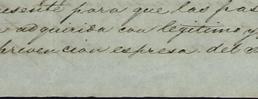 esente para que las pas
adquirida con legitimo y
prevencion espresa del